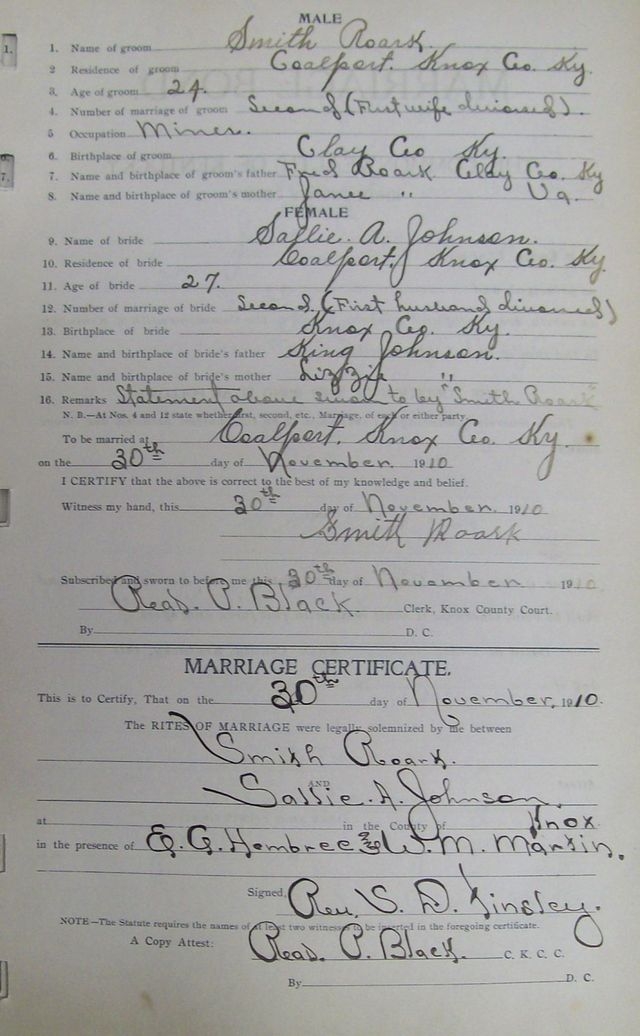 MALE
1.
1. Name of groom Smith Roark.
2 Residence of groom Coalport. Knox Co. Ky.
3. Age of groom 24.
4. Number of marriage of groom Second (First wife divorced).
5 Occupation Miner.
6. Birthplace of groom Clay Co Ky.
7. Name and birthplace of groom's father Fred Roark Clay Co. Ky
7.
8. Name and birthplace of groom's mother Janee " Va.
FEMALE
9. Name of bride Sallie. A. Johnson.
10. Residence of bride Coalport. Knox Co. Ky.
11. Age of bride 27.
12. Number of marriage of bride Second. (First husband divorced)
13. Birthplace of bride Knox Co. Ky.
14. Name and birthplace of bride's father King Johnson.
15. Name and birthplace of bride's mother Lizzie "
16. Remarks Statement above sworn to by "Smith Roark"
N. B.—At Nos. 4 and 12 state whether first, second, etc., Marriage, of each or either party.
To be married at Coalport. Knox Co. Ky.
on the 30th day of November. 1910
I CERTIFY that the above is correct to the best of my knowledge and belief.
Witness my hand, this 30th day of November. 1910
Smith Roark
Subscribed and sworn to before me this 30th day of November 1910
Read. P. Black Clerk, Knox County Court.
By D. C.
MARRIAGE CERTIFICATE.
This is to Certify, That on the 30th day of November, 1910.
The RITES OF MARRIAGE were legally solemnized by me between
Smith Roark.
AND
Sallie. A. Johnson.
at in the County of Knox
in the presence of E. G. Hembree & W. M. Martin.
Signed, Rev. S. D. Tinsley.
NOTE—The Statute requires the names of at least two witnesses to be inserted in the foregoing certificate.
A Copy Attest: Read. P. Black. C. K. C. C.
By D. C.